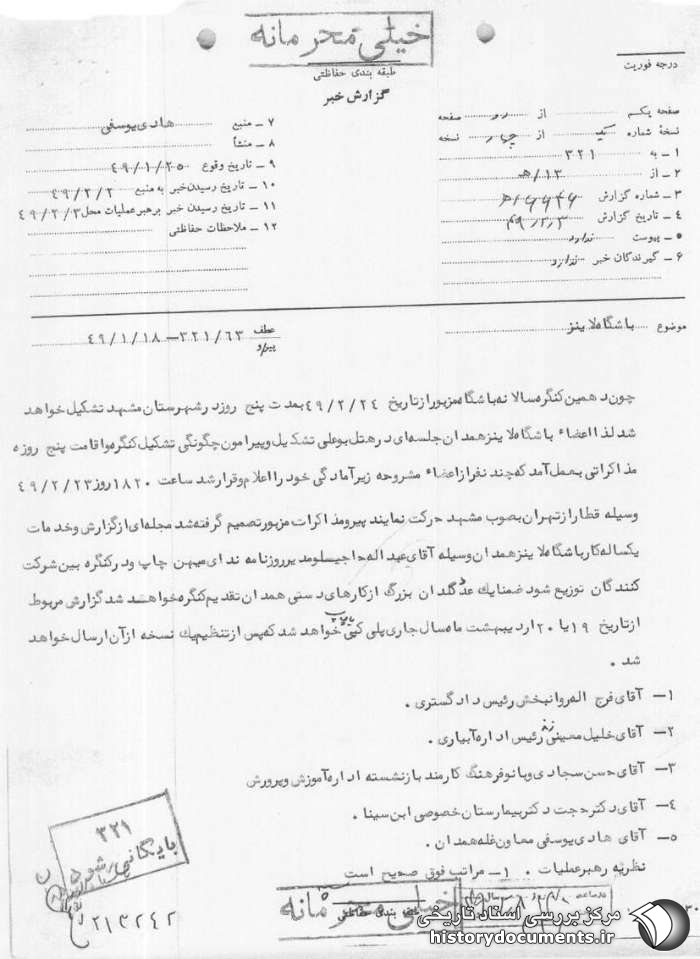 خیلی محرمانه
طبقه بندی حفاظتی
گزارش خبر
درجه فوریت
صفحه یکم از دو صفحه
نسخهٔ شماره یک از چهار نسخه
۱ ـ به ۳۲۱
۲ ـ از ۱۲/ﻫ
۳ ـ شماره گزارش
۴ ـ تاریخ گزارش ۴۹/۲/۳
۵ ـ پیوست ندارد
۶ ـ گیرندگان خبر ندارد
۷ ـ منبع هادی یوسفی
۸ ـ منشأ
۹ ـ تاریخ وقوع ۴۹/۱/۲۵
۱۰ ـ تاریخ رسیدن خبر به منبع ۴۹/۲/۲
۱۱ ـ تاریخ رسیدن خبر برهبرعملیات محل ۴۹/۲/۳
۱۲ ـ ملاحظات حفاظتی
موضوع باشگاه لاینز
عطف ۳۲۱/۶۳ـ ۴۹/۱/۱۸
پیرو
چون دهمین کنگره سالانه باشگاه مزبور از تاریخ ۴۹/۲/۲۴ بمدت پنج روز در شهرستان مشهد تشکیل خواهد
شد لذا اعضاء باشگاه لاینز همدان جلسه‌ای در هتل بوعلی تشکیل و پیرامون چگونگی تشکیل کنگره واقامت پنج روزه
مذاکراتی بعمل آمد که چند نفر از اعضاء مشروحه زیر آمادگی خود را اعلام و قرار شد ساعت ۱۸۲۰ روز ۴۹/۲/۲۳
وسیله قطار از تهران بصوب مشهد حرکت نمایند پیرو مذاکرات مزبور تصمیم گرفته شد مجله‌ای از گزارش و خدمات
یکساله کار باشگاه لاینز همدان وسیله آقای عبداله حاجیسلو مدیر روزنامه ندای میهن چاپ و در کنگره بین شرکت
کنندگان توزیع شود ضمنا یك عدد گلدان بزرگ از کارهای دستی همدان تقدیم کنگره خواهد شد گزارش مربوط
از تاریخ ۱۹ یا ۲۰ اردیبهشت ماه سال جاری پلی کپی خواهد شد که پس از تنظیم یك نسخه از آن ارسال خواهد
شد .
۱ـ آقای فرج اله روانبخش رئیس دادگستری .
۲ـ آقای خلیل معینی رئیس اداره آبیاری .
۳ـ آقای حسن سجادی و بانو فرهنگ کارمند بازنشسته اداره آموزش و پرورش
۴ـ آقای دکتر حجت دکتر بیمارستان خصوصی ابن سینا .
۵ـ آقای هادی یوسفی معاون غله همدان .
نظریه رهبر عملیات . ۱ـ مراتب فوق صحیح است
۳۲۱
بایگانی شود
۲۱۳۲۴۲
خیلی محرمانه
طبقه بندی حفاظتی
مرکز بررسی اسناد تاریخی
historydocuments.ir